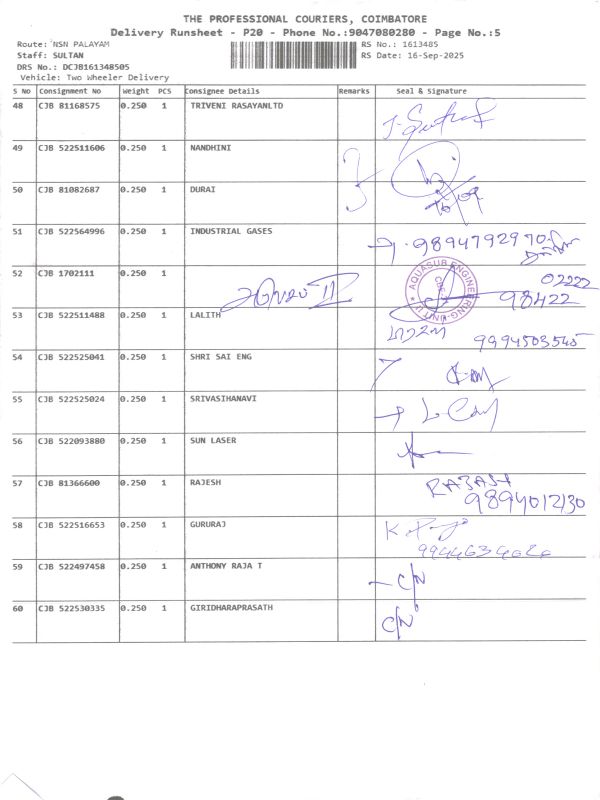 THE PROFESSIONAL COURIERS, COIMBATORE
Delivery Runsheet - P20 - Phone No.:9047080280 - Page No.:5
Route: NSN PALAYAM RS No.: 1613485
Staff: SULTAN RS Date: 16-Sep-2025
DRS No.: DCJB161348505
Vehicle: Two Wheeler Delivery
S No Consignment No Weight PCS Consignee Details Remarks Seal & Signature
48 CJB 81168575 0.250 1 TRIVENI RASAYANLTD
49 CJB 522511606 0.250 1 NANDHINI
50 CJB 81082687 0.250 1 DURAI
51 CJB 522564996 0.250 1 INDUSTRIAL GASES 9894792970
52 CJB 1702111 0.250 1 AQUASUB ENGINEERING-UNIT II CBE 02222
98422
53 CJB 522511488 0.250 1 LALITH
9994503545
54 CJB 522525041 0.250 1 SHRI SAI ENG
55 CJB 522525024 0.250 1 SRIVASIHANAVI
56 CJB 522093880 0.250 1 SUN LASER
57 CJB 81366600 0.250 1 RAJESH
9894012130
58 CJB 522516653 0.250 1 GURURAJ
59 CJB 522497458 0.250 1 ANTHONY RAJA T C/N
60 CJB 522530335 0.250 1 GIRIDHARAPRASATH C/N